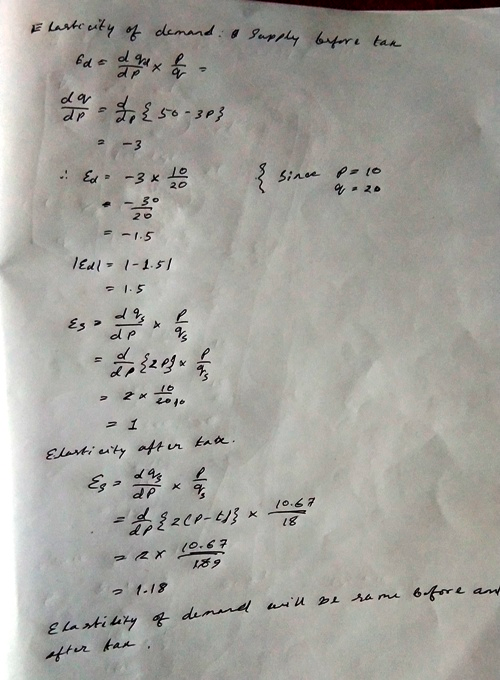 Elasticity of demand: & Supply before tax
Ed = dqd/dp × P/q =
dq/dp = d/dp {50 - 3P}
= -3
∴ Ed = -3 × 10/20 { Since P = 10
q = 20
= -30/20
= -1.5
|Ed| = |-1.5|
= 1.5
Es = dqs/dp × P/qs
= d/dp {2P} × P/qs
= 2 × 10/20
= 1
Elasticity after tax.
Es = dqs/dp × P/qs
= d/dp {2(P-t)} × 10.67/18
= 2 × 10.67/18
= 1.18
Elasticity of demand will be same before and
after tax.